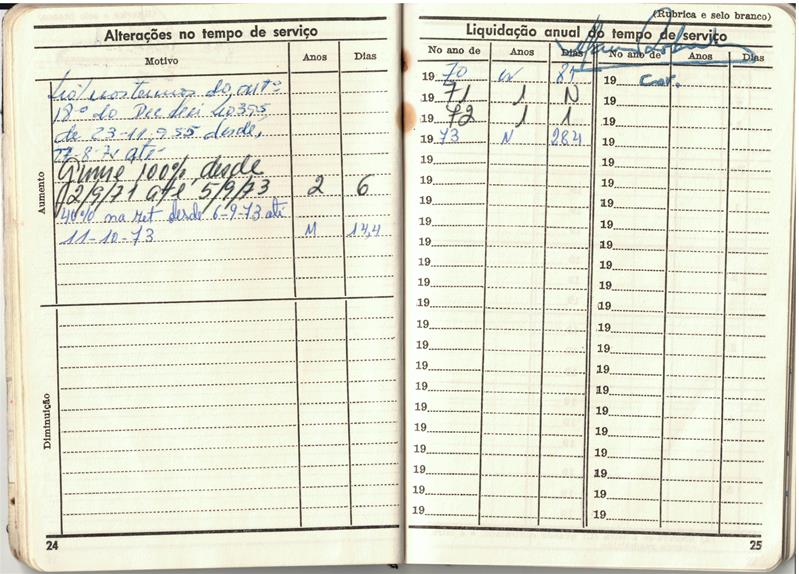 Alterações no tempo de serviço
Motivo Anos Dias
Aumento
nos termos do artº
18º do Dec Lei 40395
de 23-11-955 desde,
27-8-71 até
Guiné 100% desde
12/9/71 até 5/9/73 2 6
40% na Met desde 6-9-73 até
11-10-73 N 14,4
Diminuição
24
(Rubrica e selo branco)
Liquidação anual do tempo de serviço
No ano de Anos Dias No ano de Anos Dias
1970 N 81 19
71 1 N 19
72 1 1 19
1973 N 284 19
19 19
19 19
19 19
19 19
19 19
19 19
19 19
19 19
19 19
19 19
19 19
19 19
19 19
19 19
19 19
19 19
19 19
19 19
Cor.
25